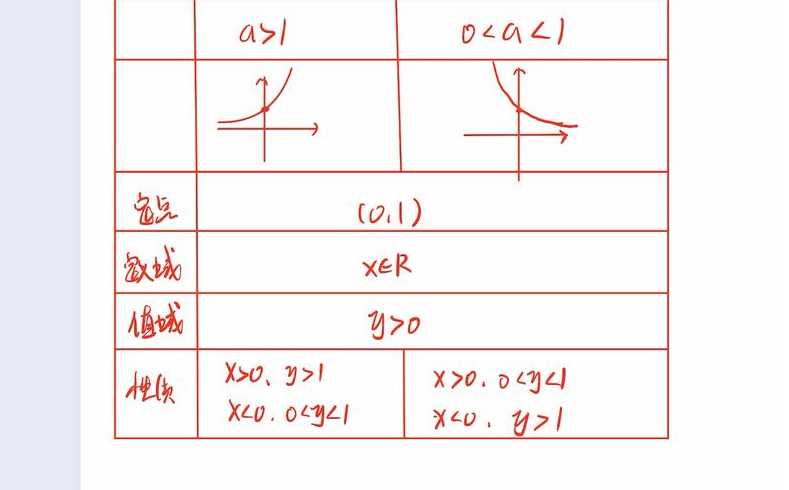 a>1
0<a<1
定点
(0,1)
定义域
x∈R
值域
y>0
性质
x>0、y>1
x<0、0<y<1
x>0、0<y<1
x<0、y>1